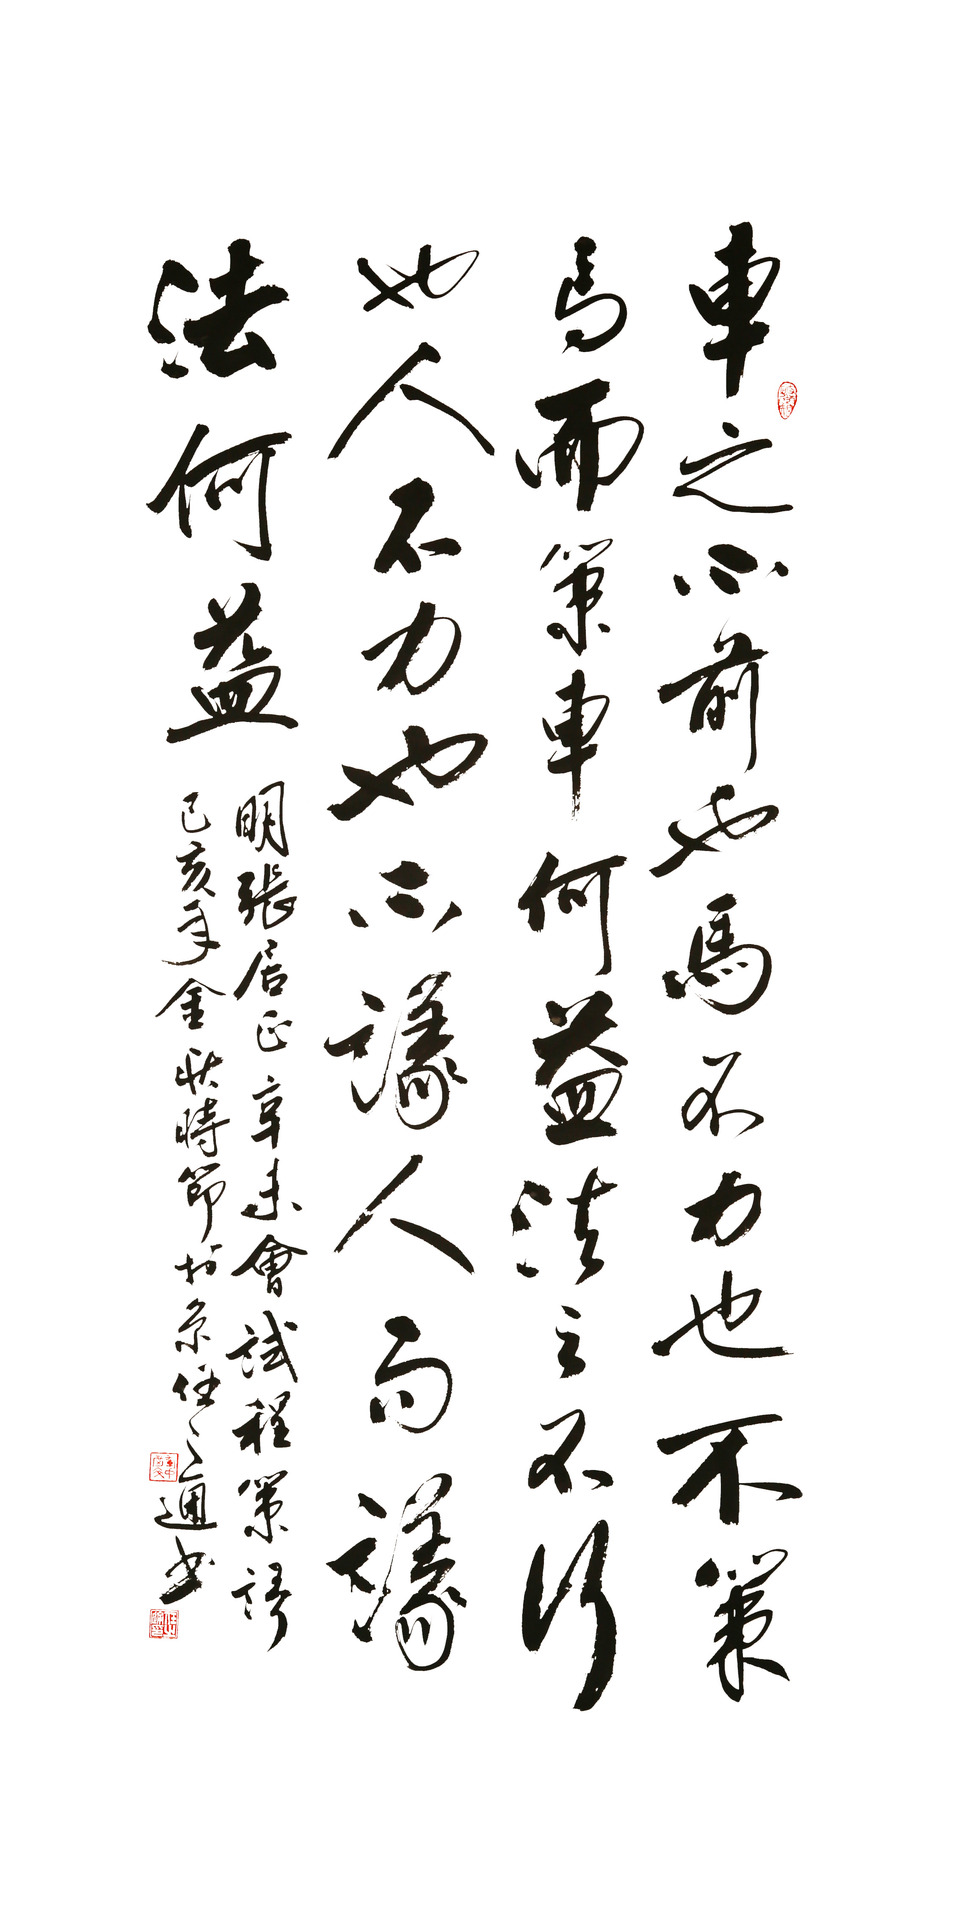 車之不前也馬不力也不策
馬而策車何益法之不行
也人不力也不議人而議
法何益
明張居正辛未會試程策語
己亥年金秋時節於京任之通书